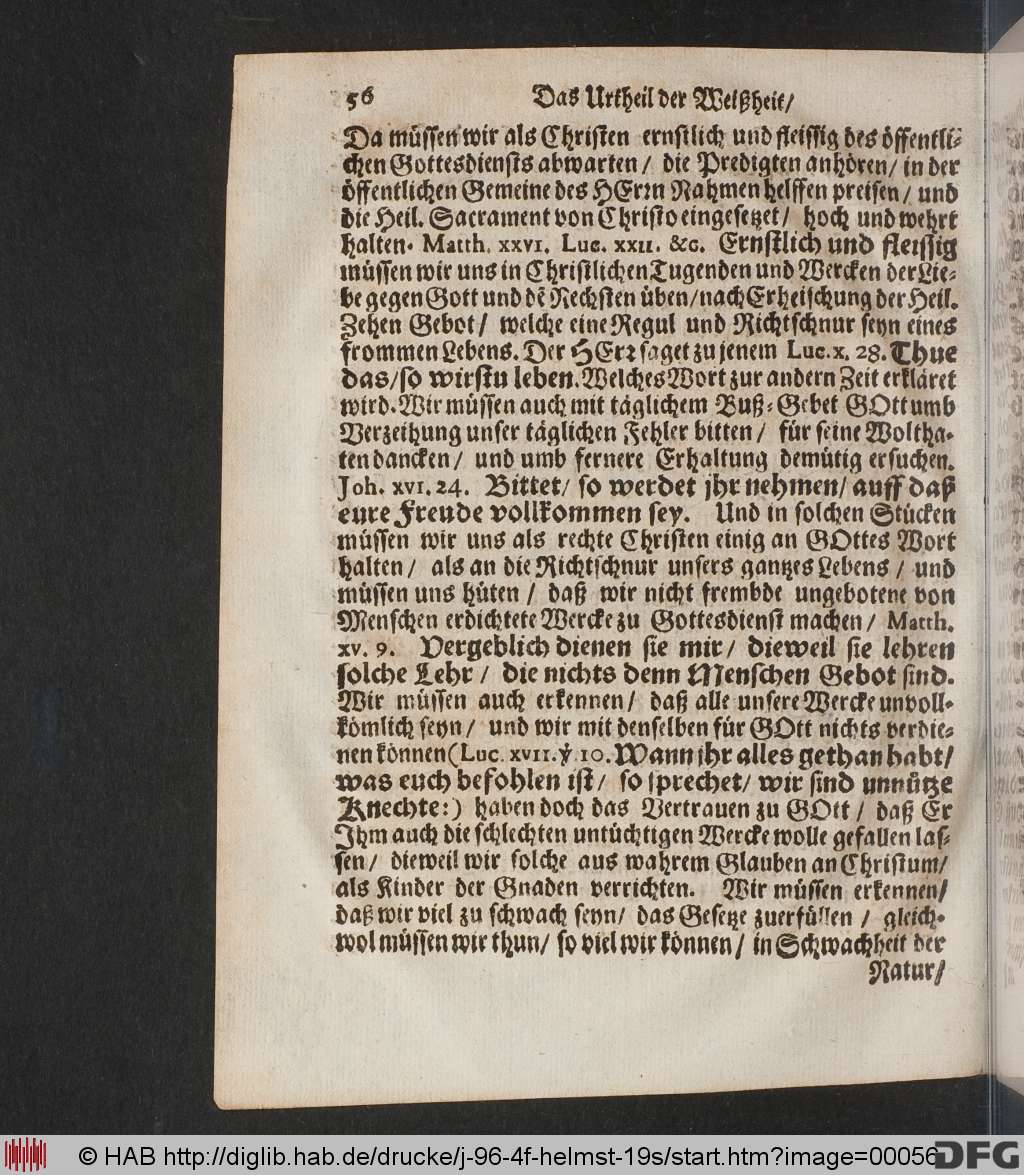 56 Das Urtheil der Weißheit/
Da müssen wir als Christen ernstlich und fleissig des öffentli-
chen Gottesdiensts abwarten / die Predigten anhören / in der
öffentlichen Gemeine des HErrn Nahmen helffen preisen / und
die Heil. Sacrament von Christo eingesetzet / hoch und wehrt
halten. Matth. XXVI. Luc. XXII. &c. Ernstlich und fleissig
müssen wir uns in Christlichen Tugenden und Wercken der Lie-
be gegen Gott und dẽ Nechsten üben / nach Erheischung der Heil.
Zehen Gebot / welche eine Regul und Richtschnur seyn eines
frommen Lebens. Der HErr saget zu jenem Luc. X. 28. Thue
das / so wirstu leben. Welches Wort zur andern Zeit erkläret
wird. Wir müssen auch mit täglichem Buß-Gebet GOtt umb
Verzeihung unser täglichen Fehler bitten / für seine Woltha-
ten dancken / und umb fernere Erhaltung demütig ersuchen.
Joh. XVI. 24. Bittet / so werdet jhr nehmen / auff daß
eure Freude vollkommen sey. Und in solchen Stücken
müssen wir uns als rechte Christen einig an GOttes Wort
halten / als an die Richtschnur unsers gantzes Lebens / und
müssen uns hüten / daß wir nicht frembde ungebotene von
Menschen erdichtete Wercke zu Gottesdienst machen / Matth.
XV. 9. Vergeblich dienen sie mir / dieweil sie lehren
solche Lehr / die nichts denn Menschen Gebot sind.
Wir müssen auch erkennen / daß alle unsere Wercke unvoll-
kömlich seyn / und wir mit denselben für GOtt nichts verdie-
nen können (Luc. XVII. ℣. 10. Wann jhr alles gethan habt /
was euch befohlen ist / so sprechet / wir sind unnütze
Knechte:) haben doch das Vertrauen zu GOtt / daß Er
Jhm auch die schlechten untüchtigen Wercke wolle gefallen las-
sen / dieweil wir solche aus wahrem Glauben an Christum /
als Kinder der Gnaden verrichten. Wir müssen erkennen /
daß wir viel zu schwach seyn / das Gesetze zuerfüllen / gleich-
wol müssen wir thun / so viel wir können / in Schwachheit der
Natur /
© HAB http://diglib.hab.de/drucke/j-96-4f-helmst-19s/start.htm?image=00056
DFG